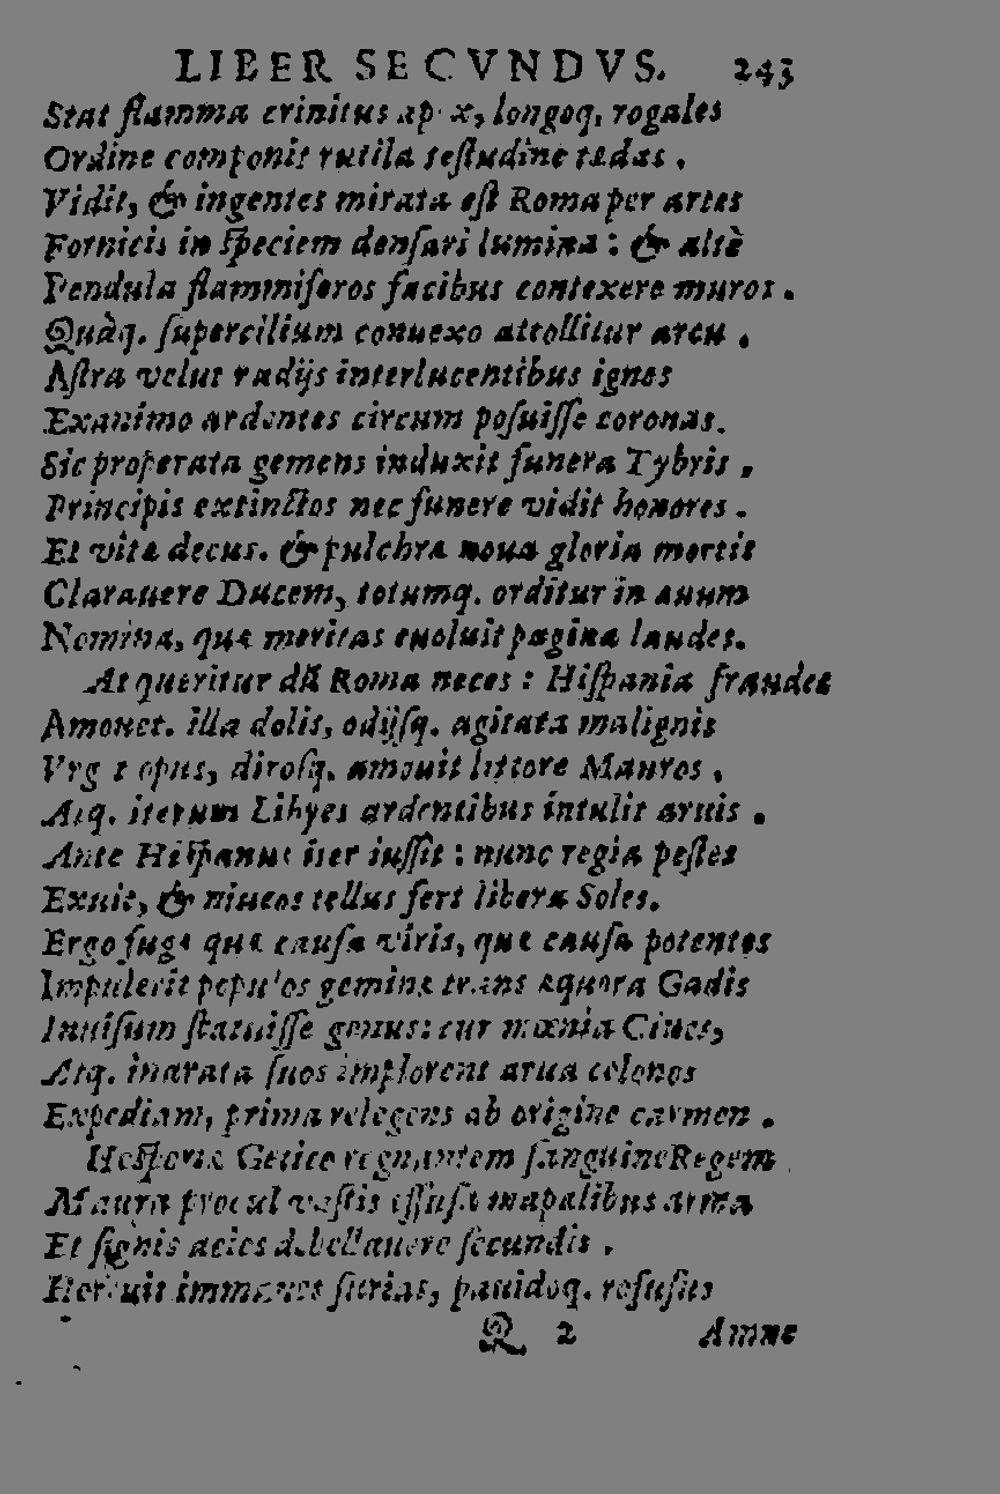 LIBER SECVNDVS. 243
Stat flamma crinitus apex, longoq; rogales
Ordine componit rutila testudine tædas.
Vidit, & ingentes mirata est Roma per artes
Fornicis in speciem densari lumina: & altè
Pendula flammiferos facibus contexere muros.
Quàq. supercilium conuexo attollitur arcu.
Astra velut radijs interlucentibus ignes
Exanimo ardentes circum posuisse coronas.
Sic properata gemens induxit funera Tybris,
Principis extinctos nec funere vidit honores.
Et vitæ decus. & pulchra noua gloria mortis
Clarauere Ducem, totumq. orditur in auum
Nomina, quæ meritas euoluit pagina laudes.
At queritur dū Roma neces: Hispania fraudes
Amouet. illa dolis, odijsq. agitata malignis
Vrget opus, dirosq. amouit littore Mauros,
Atq. iterum Libyes ardentibus intulit aruis.
Ante Hispanus iter iussit: nunc regia pestes
Exuit, & niueos tellus fert libera Soles.
Ergo fugæ quæ causa viris, quæ causa potentes
Impulerit populos geminæ trans æquora Gadis
Inuisum statuisse genus: cur mœnia Ciues,
Atq. inarata suos implorent arua colonos
Expediam, prima relegens ab origine carmen.
Hesperiæ Getico regnantem sanguine Regem
Maura procul vastis effusa mapalibus arma
Et signis acies debellauere secundis.
Horruit immanes furias, pauidoq. refusus
Q 2 Amne